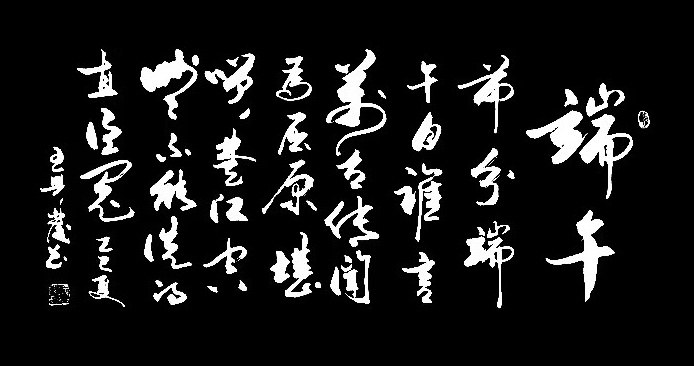 端午
節分端
午自誰言
萬古傳聞
為屈原堪
咲楚江空
渺渺不能洗得
直臣冤 夏